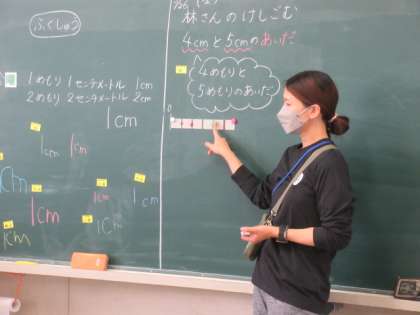 ふくしゅう
1めもり 1センチメートル 1cm
2めもり 2センチメートル 2cm
1cm
1cm
1cm
1cm
1cm
1cm
1cm
1cm
1cm
林さんのけしごむ
4cmと5cmのあいだ
4めもりと
5めもりのあいだ
0